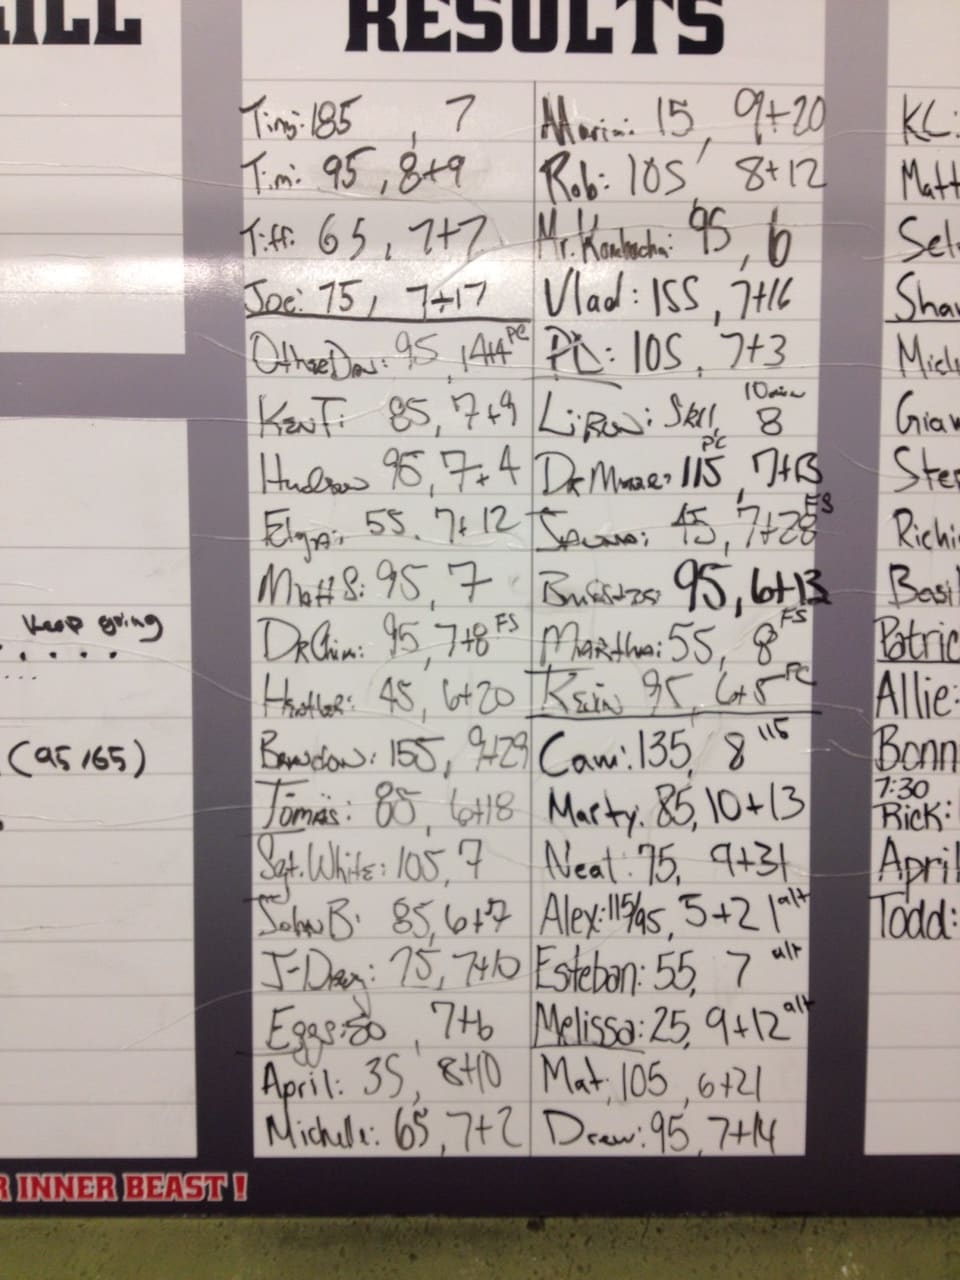 RESULTS
Tiny: 185, 7
Tim: 95, 8+9
Tiff: 65, 7+7
Joe: 75, 7+17
95, PC
KenT: 85, 7+9
Hudson 95, 7+4
55, 7+12
Matt S: 95, 7
Dr Chin: 95, 7+8 FS
Heather: 45, 6+20
Brandon: 155, 9+29
Tomas: 85, 6+18
Sgt. White: 105, 7
John B: 85, 6+7
75, 7+10
Eggs: 50, 7+6
April: 35, 8+10
Michelle: 65, 7+2
Maria: 15, 9+20
Rob: 105, 8+12
Mr. Kombucha: 95, 6
Vlad: 155, 7+16
105, 7+3
Skill, 10min 8
115 PC, 7+13
45, 7+28 FS
95, 6+13
Martha: 55, 8 FS
Kevin 95, 6+5 PC
Cam: 135, 8 115
Marty: 85, 10+13
Neal: 75, 9+31
Alex: 115/95, 5+21 alt
Esteban: 55, 7 alt
Melissa: 25, 9+12 alt
Mat: 105, 6+21
Drew: 95, 7+14
KC:
Matt
Rick:
April
Todd:
Allie:
7:30
keep going
(95/65)
INNER BEAST!